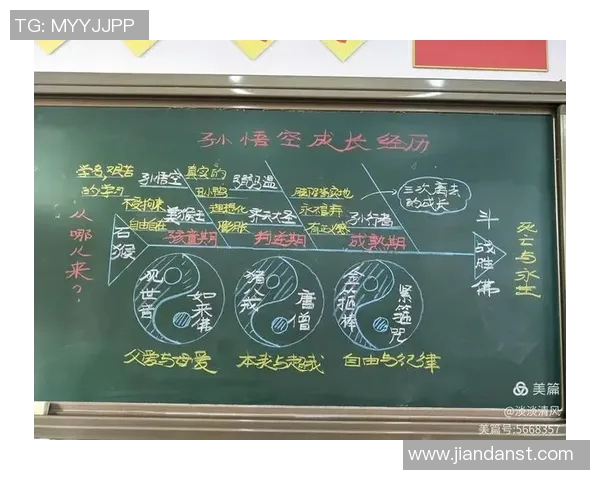 TG: MYYJJPP
孙悟空成长经历
学名,艰苦
的学习
孙悟空
真实的
弼马温
脚踏实地
三次离去
的成长
不受拘束
自由自在
美猴王
理想化
齐天大圣
永不言弃
孙行者
从哪儿来?
石猴
孩童期
叛逆期
成熟期
斗战胜佛
死亡与永生
观世音
如来佛
猪八戒
唐僧
金箍棒
紧箍咒
父爱与母爱
本我与超我
自由与纪律
美篇
@淡淡清风
美篇号:5668357
www.jiandanst.com